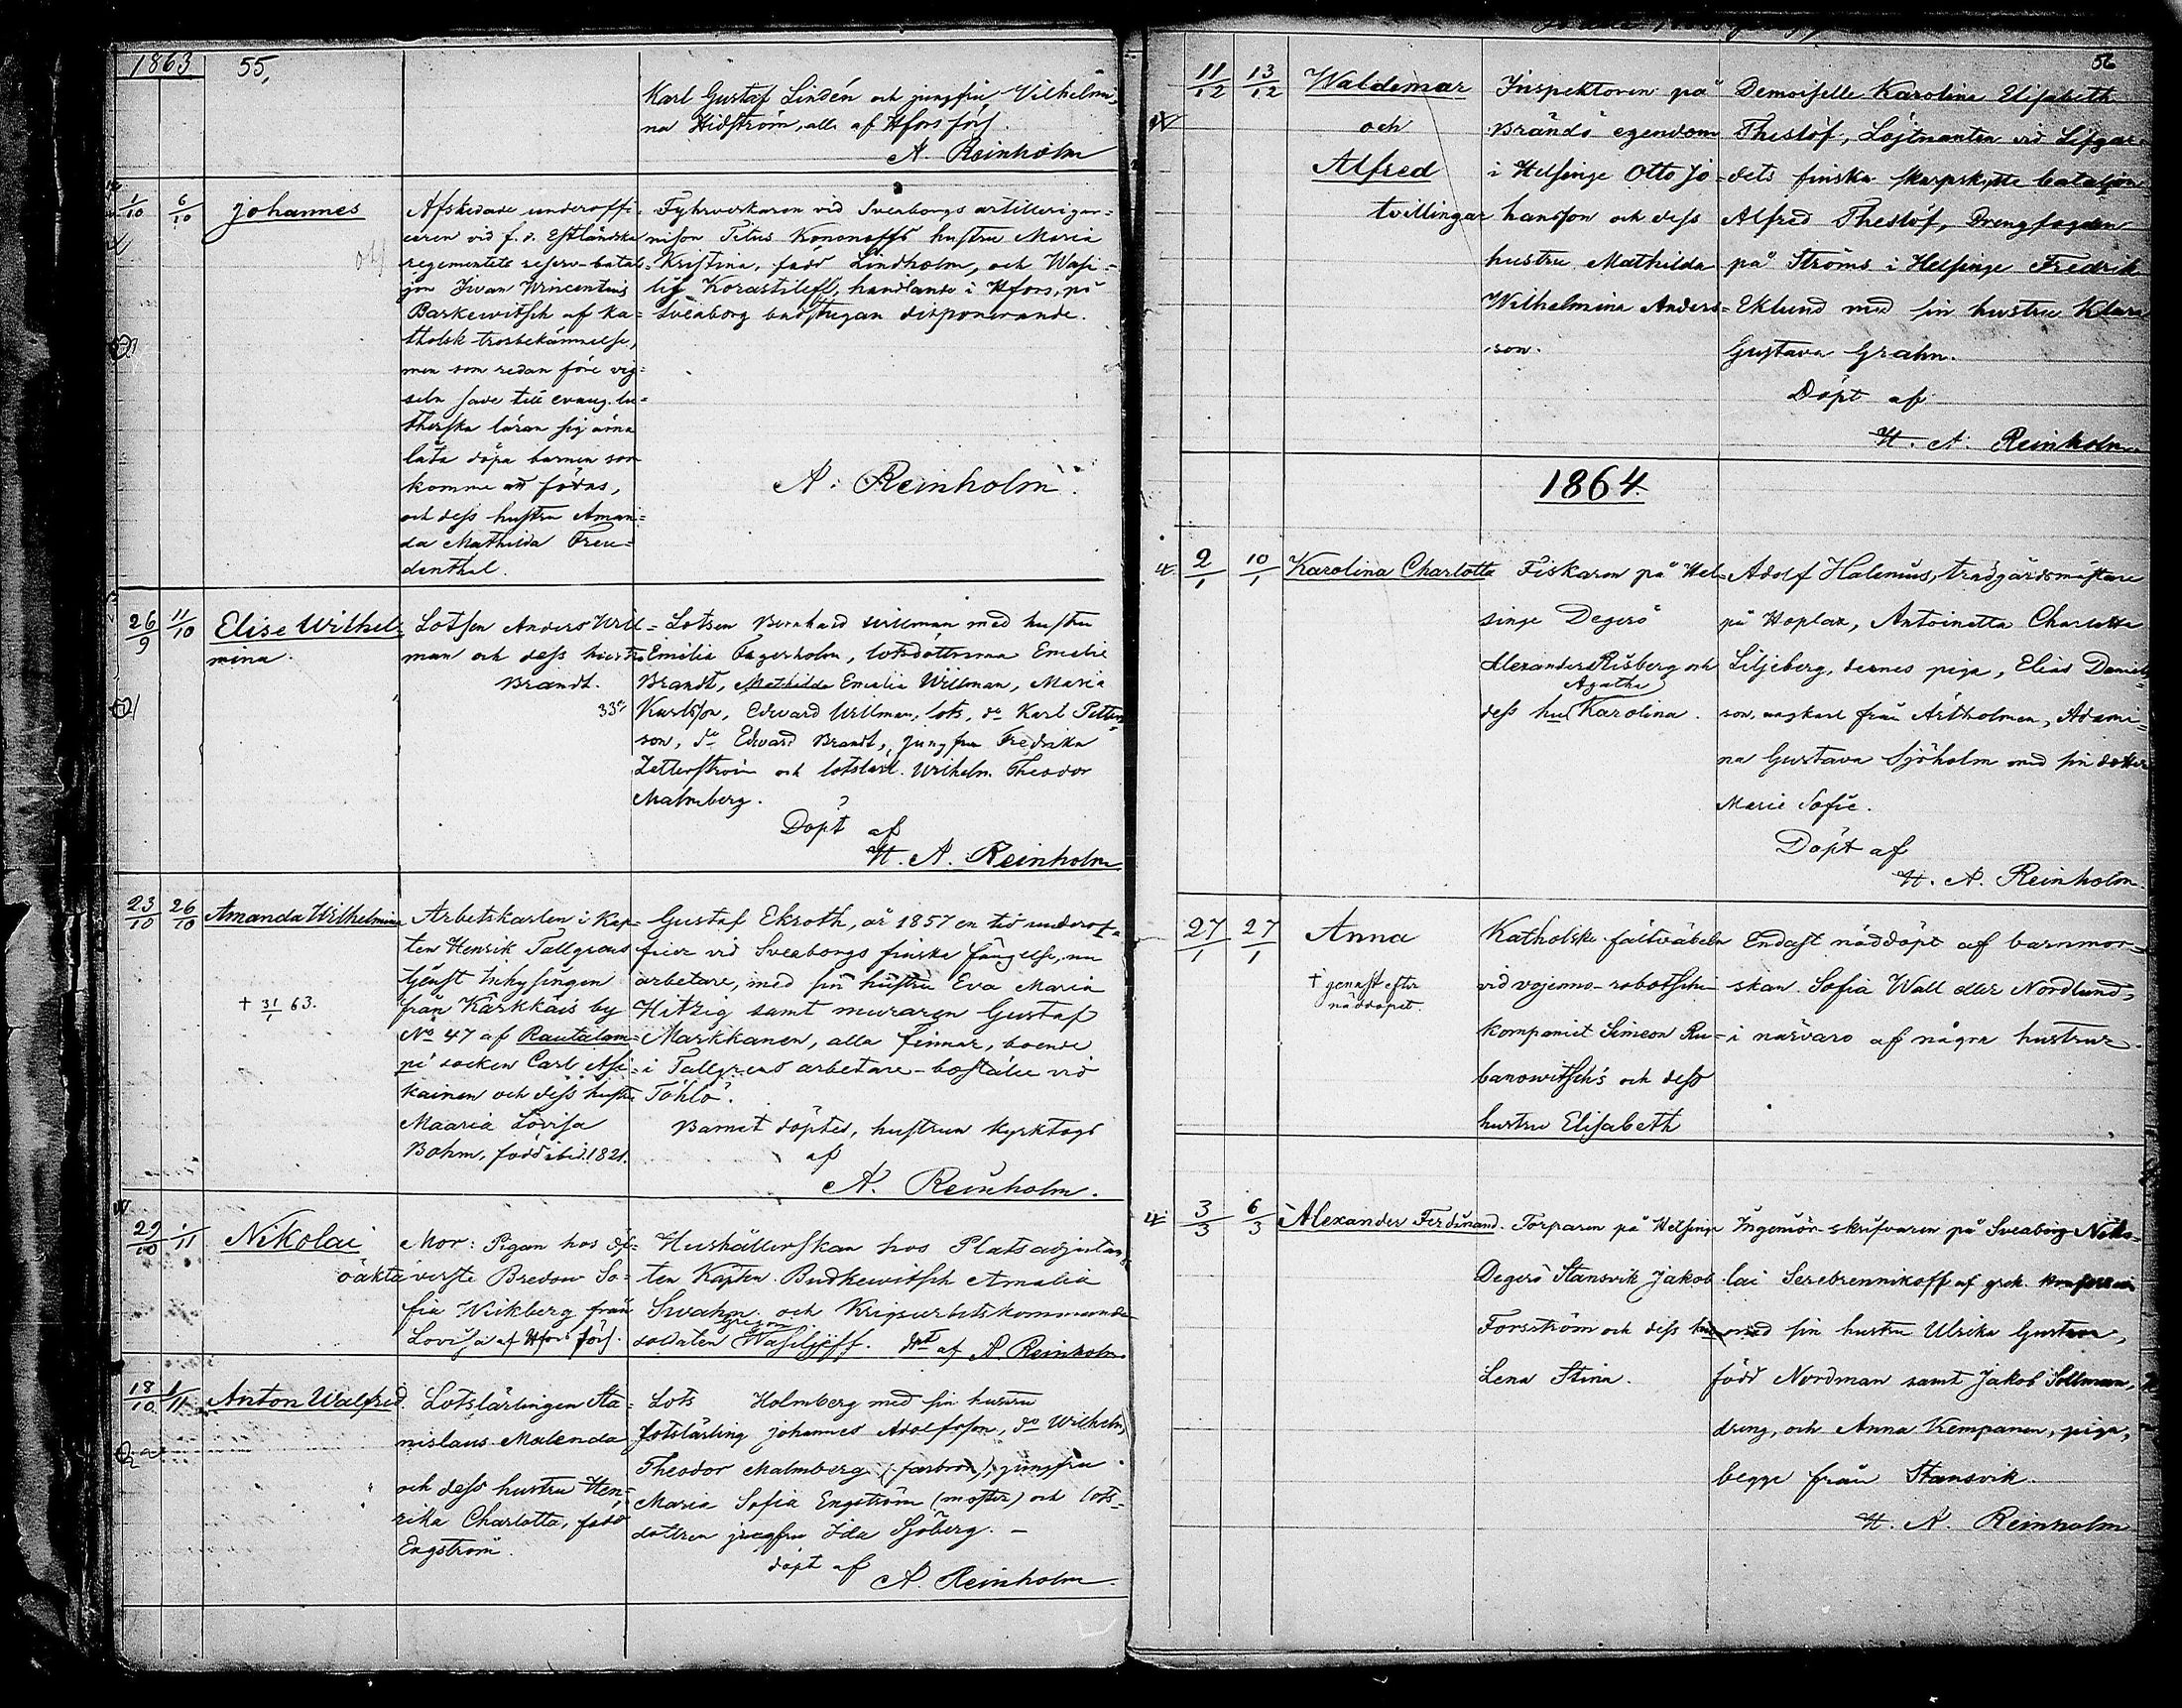 1863 55,
Karl Gustaf Lindén och jungfru Vilhelmi-
na Hidström, alla af Hfors förs.
A. Reinholm
1/10 6/10 Johannes
Afskedade underoffi-
ceren vid f. d. Estländska
regementets reserv-batal-
jon Iwan Wincentius
Barkewitsch af ka-
tholsk trosbekännelse,
men som redan före vig-
seln sade till evang. lu-
therska läran sig ärna
låta döpa barnen som
komme att födas,
och dess hustru Aman-
da Mathilda Freu-
denthal.
Fyhrverkaren vid Sveaborgs artillerigar-
nison Titus Kononoffs hustru Maria
Kristina, född Lindholm, och Wasi-
lij Korastileff, handlande i Hfors, på
Sveaborg badstugan disponerande.
A. Reinholm.
26/9 11/10 Elise Wilhel-
mina.
Lotsen Anders Will-
man och dess hustru
Brandt.
33 år
Lotsen Bernhard Willman med hustru
Emilia Fagerholm, lotsdöttrarna Emelie
Brandt, Mathilda Emelia Willman, Maria
Karlsson, Edvard Willman, lots, do Karl Petters-
son, do Edvard Brandt, jungfru Fredrika
Zetterström och lotslärl. Wilhelm Theodor
Malmberg.
Döpt af
H. A. Reinholm
23/10 26/10 Amanda Wilhelmina
+ 31/1 63.
Arbetskarlen i Kap-
ten Henrik Tallgrens
tjenst Inhysingen
från Kärkkäis by
No 47 af Rautalam-
pi socken Carl Asi-
kainen och dess hustru
Maaria Lovisa
Bohm, född ibid. 1821.
Gustaf Ekroth, år 1857 en tid underof-
ficer vid Sveaborgs finska fängelse, nu
arbetare, med sin hustru Eva Maria
Hitzig samt muraren Gustaf
Markkanen, alla finnar, boende
i Tallgrens arbetare-boställe vid
Töhlö.
Barnet döptes, hustrun kyrktogs
af
A. Reinholm.
29/10 1/11 Nikolai
oäkta
Mor: Pigan hos Öf-
verste Bredow So-
fia Wikberg från
Lovisa af Hfors förs.
Hushållerskan hos Platsadjutan-
ten Kapten Budkewitsch Amalia
Swahn och Krigsarbetskommando
soldaten Grigori Wasiljeff. Dpt af A. Reinholm
18/10 1/11 Anton Walfrid
Lotslärlingen Sta-
nislaus Malenda
och dess hustru Hen-
rika Charlotta, född
Engström.
Lots Holmberg med sin hustru
Lotslärling Johannes Adolfsson, do Wilhelm
Theodor Malmberg (farbror), jungfru
Maria Sofia Engström (moster) och lots-
dottren jungfru Ida Sjöberg. –
döpt af
A. Reinholm.
56
11/12 13/12 Waldemar
och
Alfred
tvillingar
Inspektoren på
Brändö egendom
i Helsinge Otto Jo-
hansson och dess
hustru Mathilda
Wilhelmina Anders-
son.
Demoiselle Karolina Elisabeth
Theslöf, Löjtnanten vid Lifgar-
dets finska skarpskytte bataljon
Alfred Theslöf, Drengfogden
på Ströms i Helsinge Fredrik
Eklund med sin hustru Klara
Gustava Grahn.
Döpt af
H. A. Reinholm.
1864.
2/1 10/1 Karolina Charlotta
Fiskaren på Hel-
singe Degerö
Alexander Risberg och
dess hu Agatha Karolina.
Adolf Halenius, trädgårdsmästare
på Hoplax, Antoinetta Charlotta
Liljeberg, dennes piga, Elias Daniels-
son, ungkarl från Ärtholmen, Adami-
na Gustava Sjöholm med sin dotter
Marie Sofie.
Döpt af
H. A. Reinholm.
27/1 27/1 Anna
† genast efter
nöddopet.
Katholske fältväbeln
vid vojenno-robotschi-
kompaniet Simeon Ru-
banowitsch's och dess
hustru Elisabeth
Endast nöddöpt af barnmor-
skan Sofia Wall eller Nordlund,
i närvaro af några hustrur.
3/3 6/3 Alexander Ferdinand.
Torparen på Helsinge
Degerö Stansvik Jakob
Forsström och dess hu
Lena Stina.
Ingeniör-skrifvaren på Sveaborg Niko-
lai Serebrennikoff af grek. konfession
med sin hustru Ulrika Gustava,
född Nordman samt Jakob Sollman,
dreng, och Anna Kempanen, piga,
begge från Stansvik.
H. A. Reinholm